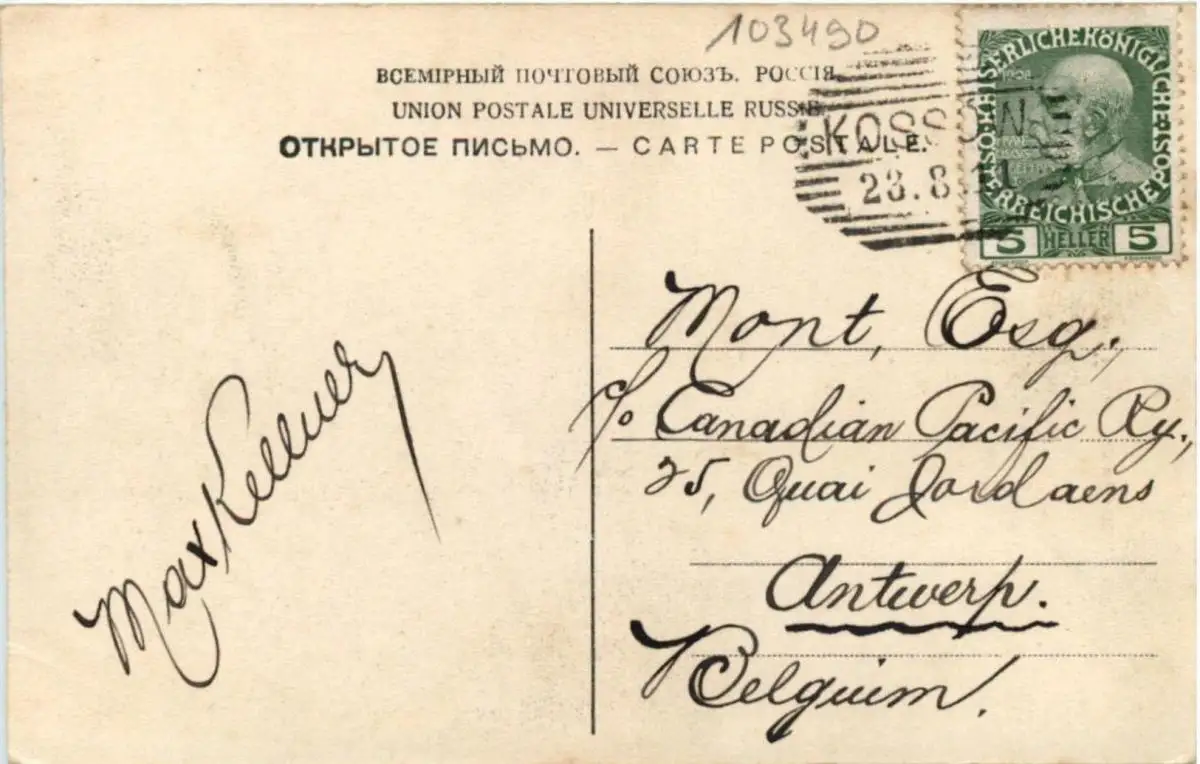 103490
ВСЕМІРНЫЙ ПОЧТОВЫЙ СОЮЗЪ. РОССІЯ
UNION POSTALE UNIVERSELLE RUSSIE
ОТКРЫТОЕ ПИСЬМО. — CARTE POSTALE.
KOSSÓN
23.8.11
KAISERLICHE KÖNIGLICHE
ÖSTERREICHISCHE POST
1908
5 HELLER 5
Mont, Esq.
c/o Canadian Pacific Ry.,
25, Quai Jordaens
Antwerp.
Belguim.
Max Kellner